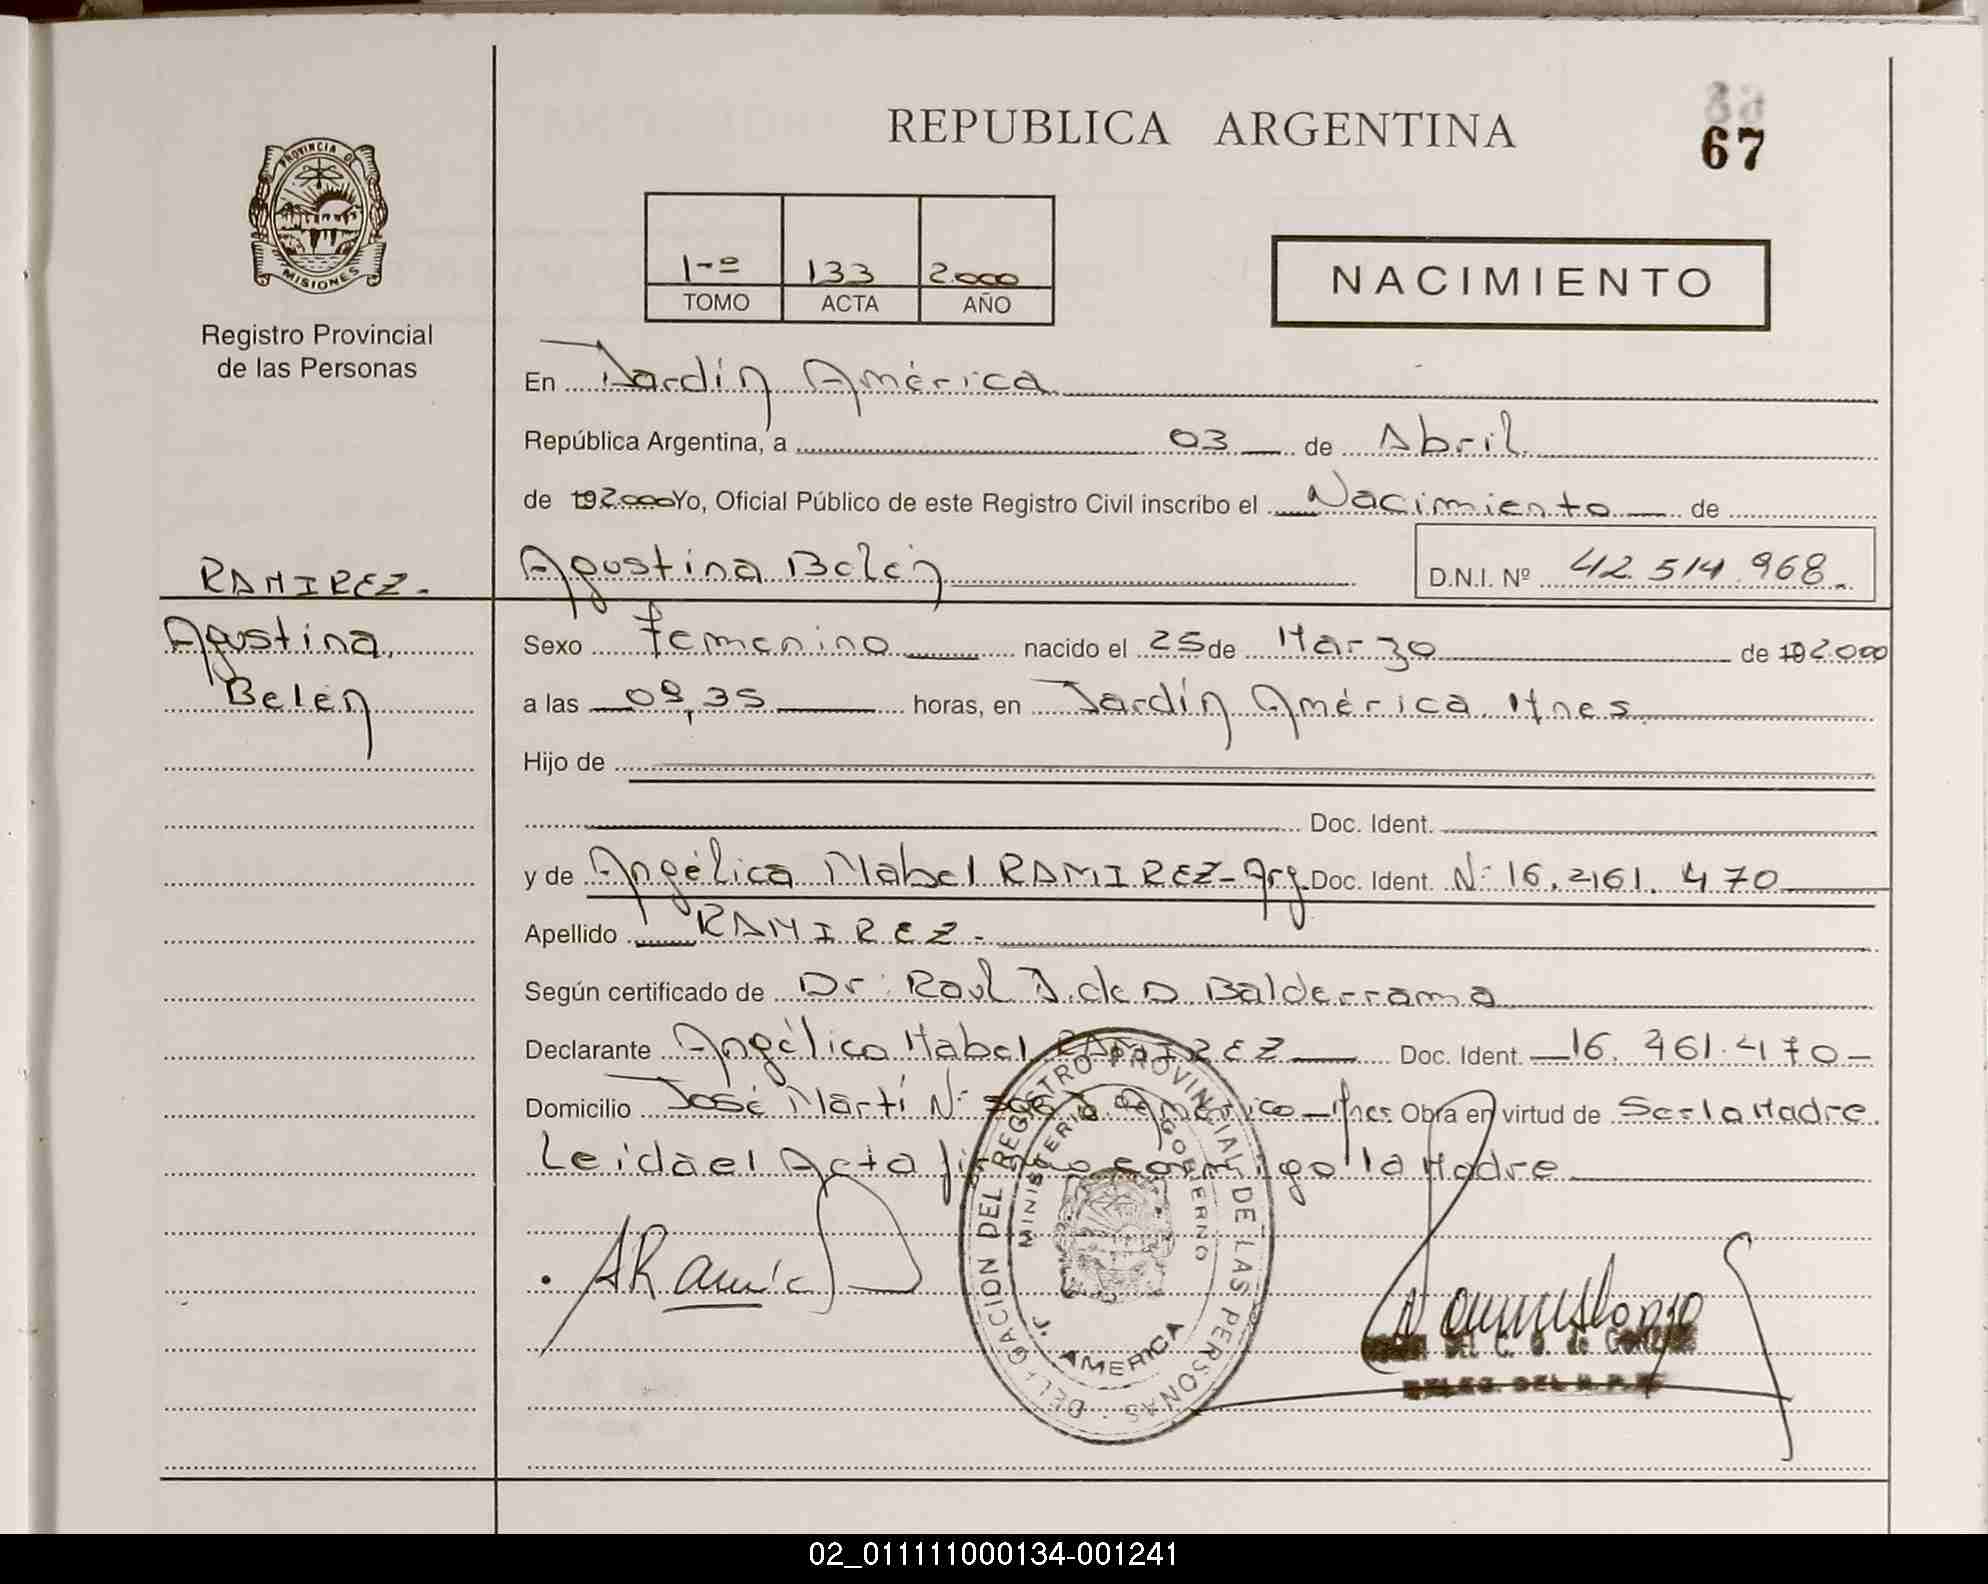 REPUBLICA ARGENTINA
67
PROVINCIA DE
MISIONES
Registro Provincial
de las Personas
1-º 133 2.000
TOMO ACTA AÑO
NACIMIENTO
En Jardín América
República Argentina, a 03 de Abril
de 192.000 Yo, Oficial Público de este Registro Civil inscribo el Nacimiento de
Agustina Belén D.N.I. Nº 42.514.968.
RAMIREZ.-
Agustina
Belén
Sexo femenino nacido el 25 de Marzo de 192.000
a las 08,35 horas, en Jardín América Mnes.
Hijo de
Doc. Ident.
y de Angélica Mabel RAMIREZ-Arg. Doc. Ident. Nº 16.261.470
Apellido RAMIREZ.-
Según certificado de Dr: Raul Balderrama
Declarante Angélica Mabel RAMIREZ Doc. Ident. 16. 461.470-
Domicilio José Martí Nº América-Mnes. Obra en virtud de Ser la Madre.
Leida el Acta firma conmigo la Madre
ARamirez
DELEGACION DEL REGISTRO PROVINCIAL DE LAS PERSONAS
MINISTERIO GOBIERNO
J. AMERICA
DEL C. G. de
DELEG. DEL R.P.P.
02_011111000134-001241